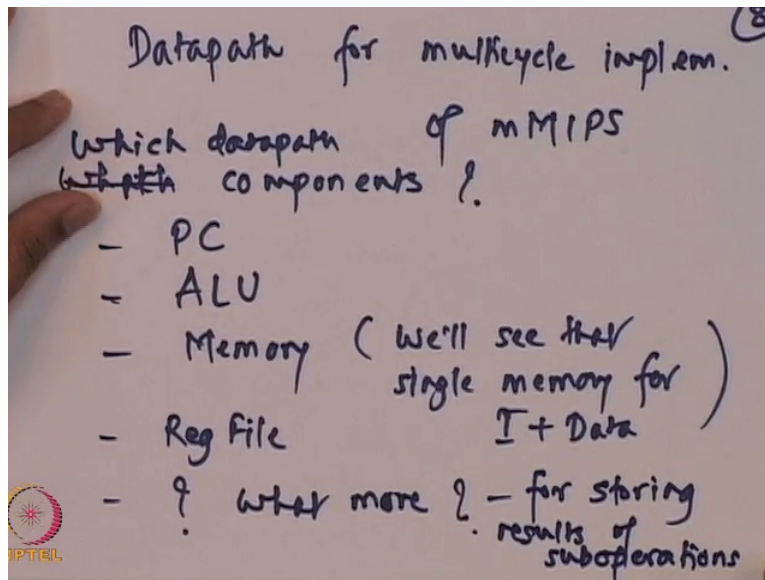 8
Datapath for multicycle implem.
of mMIPS
Which datapath
components ?
- PC
- ALU
- Memory ( we'll see that
single memory for )
- Reg File I + Data
- ? what more ? - for storing
results of
suboperations
NPTEL